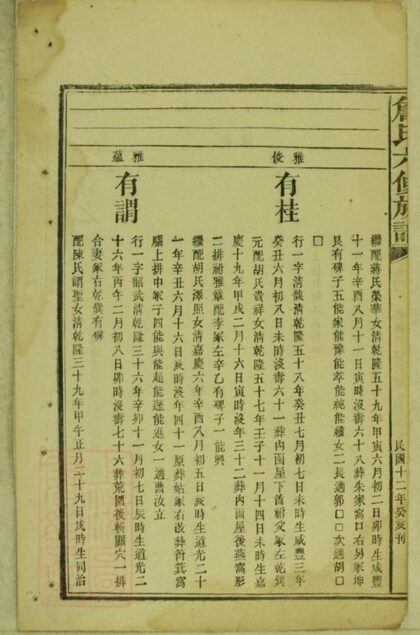 詹氏六修族譜
民國十二年癸亥刊
繼配蔣氏榮華女清乾隆五十九年甲寅六月初二日卯時生咸豐
十一年辛酉八月十一日寅時沒壽六十八葬朱家窩口右另冢坤
艮有碑子五能家能豫能萃能統能纘女二長適郭口口次適胡口
口
雅俊
有桂
行一字清馥清乾隆五十八年癸丑七月初七日未時生咸豐三年
癸丑六月初八日未時沒壽六十一葬內面屋下首祔父冢左乾巽
元配胡氏貴祥女清乾隆五十七年壬子十一月十四日未時生嘉
慶十九年甲戌二月十六日寅時沒年二十三葬內面屋後燕窩形
二排祔雅章配李冢左辛乙有碑子一能興
繼配胡氏澤照女清嘉慶六年辛酉八月初五日亥時生道光二十
一年辛丑六月十六日亥時沒年四十一原葬姑冢右改葬筲箕窩
膓上排中冢子四能與能超能蓬能進女一適曹汝立
雅蘊
有謂
行一字韶武清乾隆三十六年辛卯十一月初七日辰時生道光二
十六年丙午二月初八日卯時沒壽七十六葬荒園後斬關穴一排
合妻冢右乾巽有碑
配陳氏謂聖女清乾隆三十九年甲午正月二十九日戌時生同治